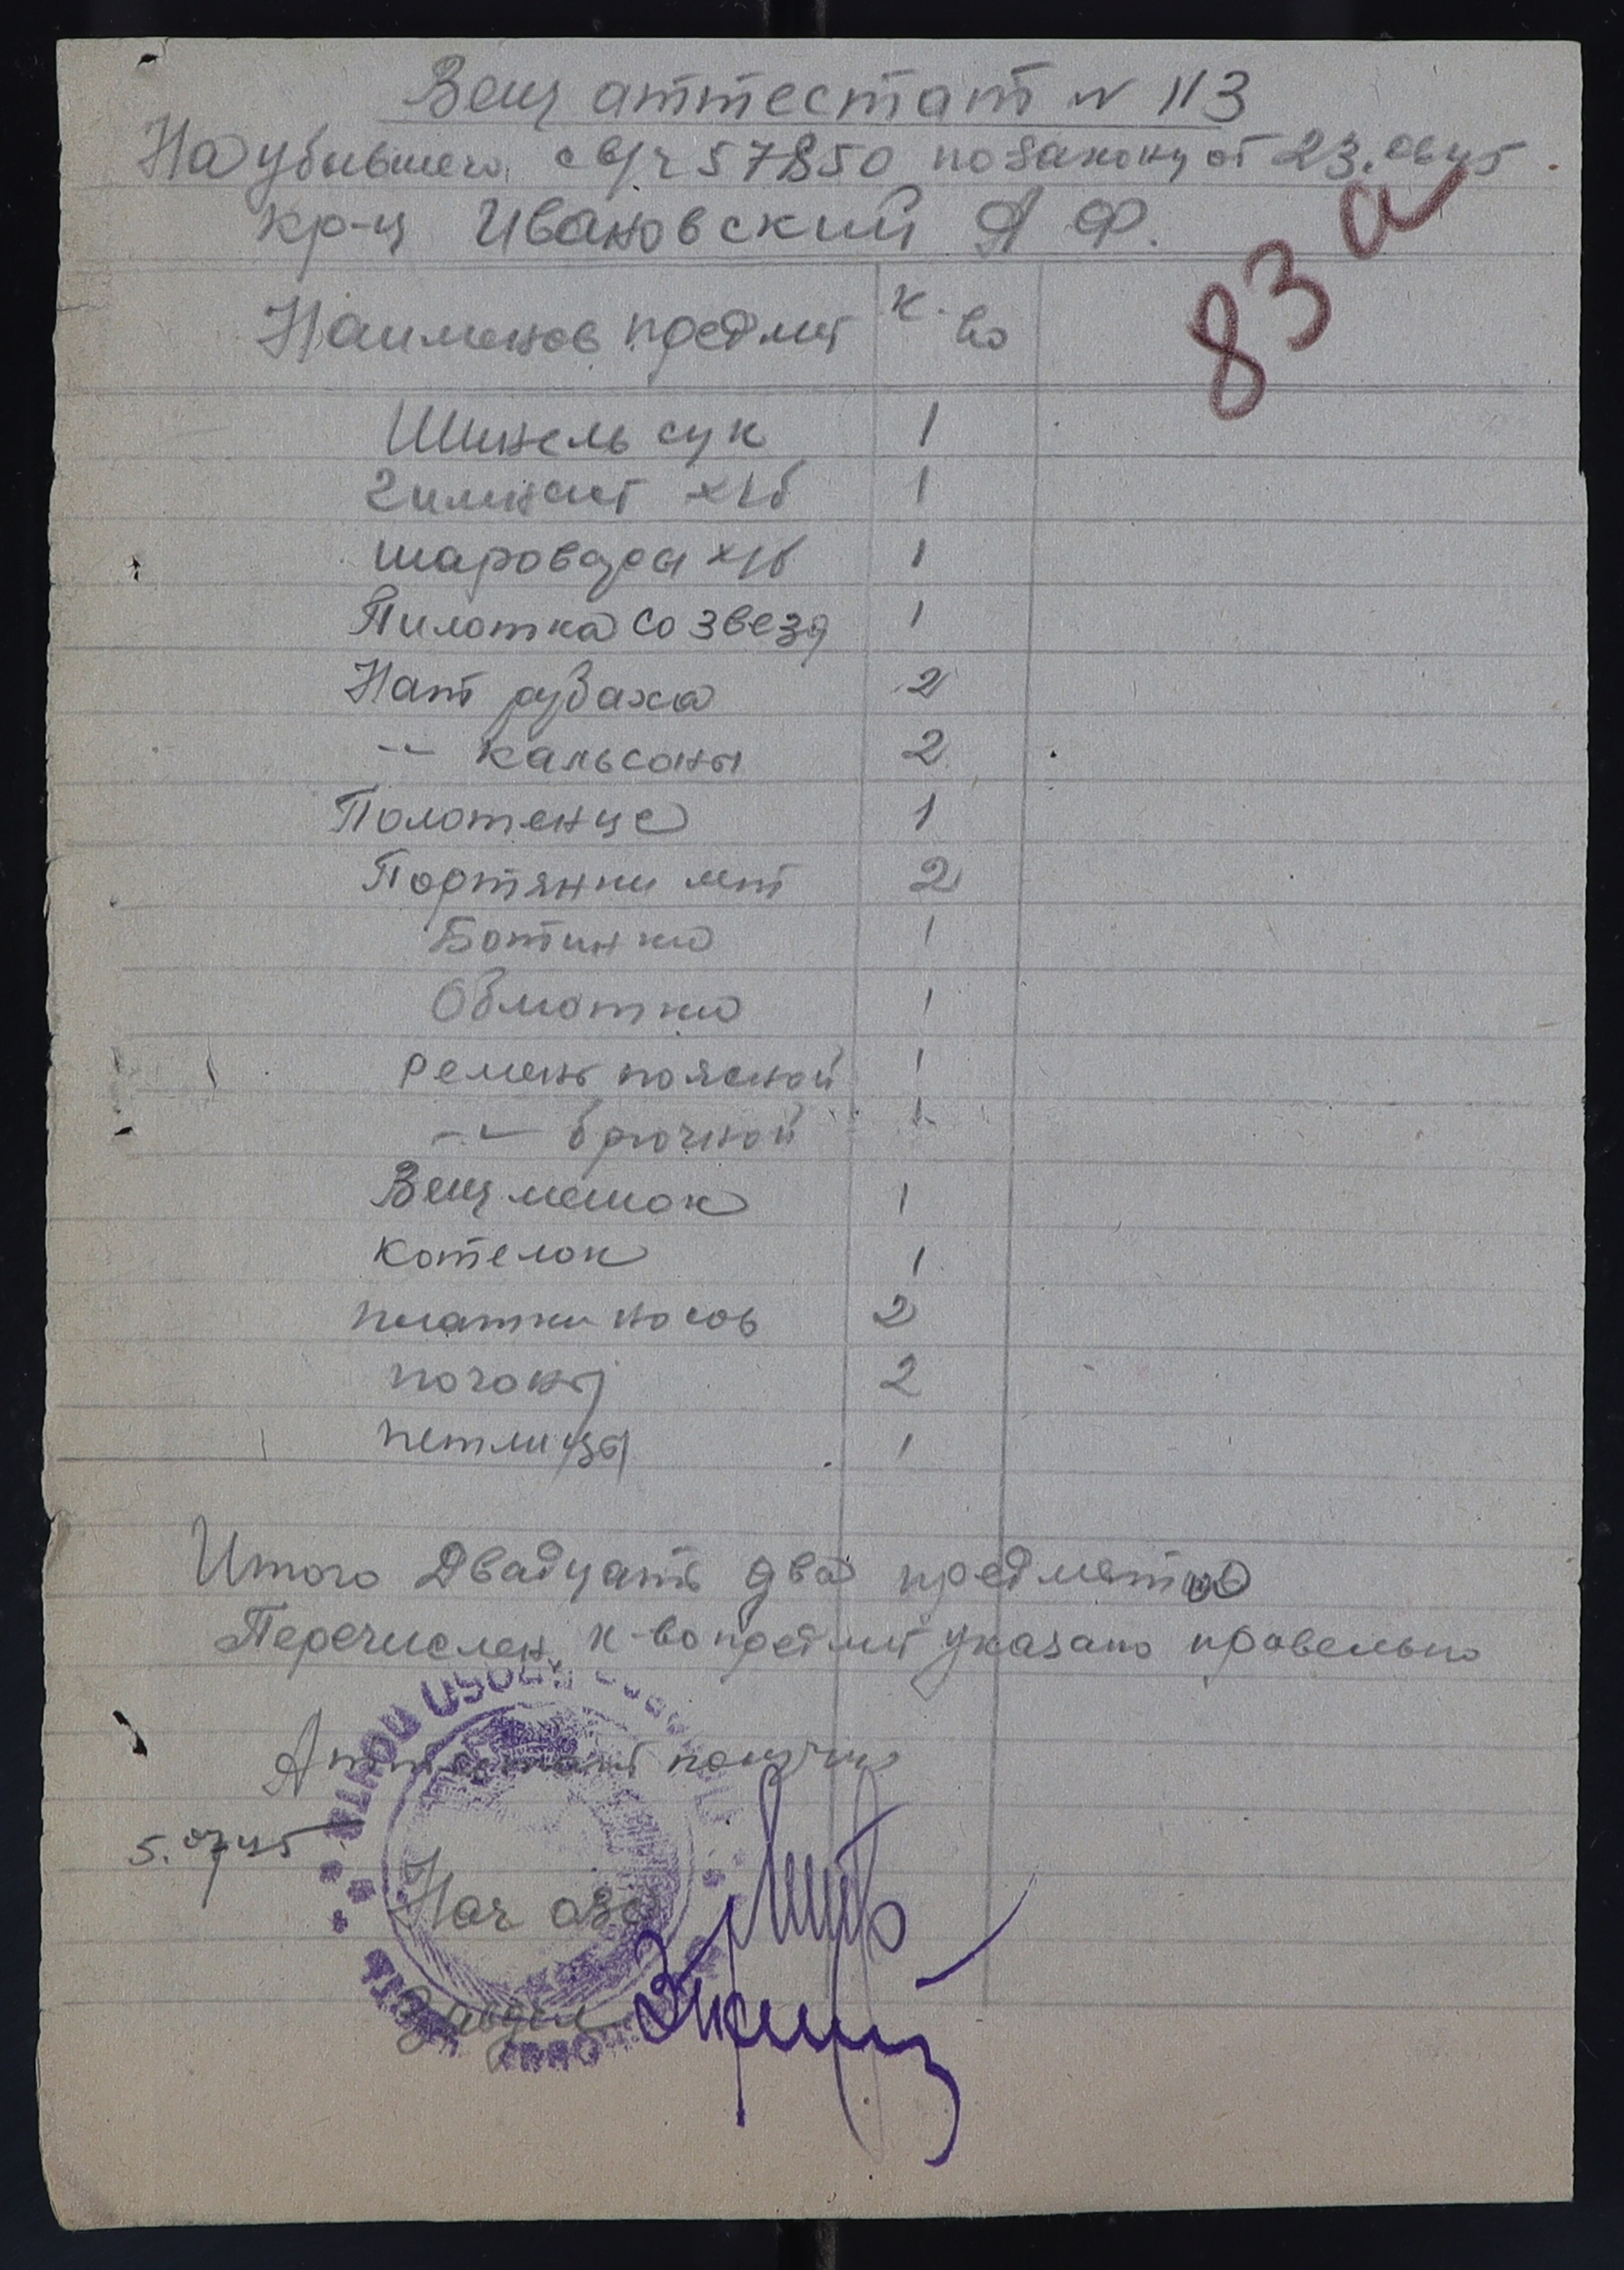 Вещ аттестат № 113
На убывшего с в/ч 57850 по закону от 23.06.45
кр-ц Ивановский А Ф.
83 а
Наименов предмет к-во
Шинель сук 1
Гимнаст х/б 1
шаровары х/б 1
Пилотка со звезд 1
Нат рубаха 2
-"- кальсоны 2
Полотенце 1
Портянки лет 2
Ботинки 1
Обмотки 1
ремень поясной 1
-"- брючной 1
Вещ мешок 1
Котелок 1
платки носов 2
погоны 2
петлицы 1
Итого Двадцать два предметов
Перечислен к-во предмет указано правельно
Аттестат получил
5.07.45
Нач ОВС
Завдел